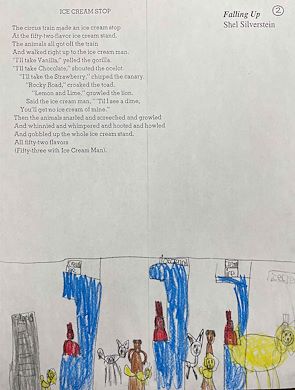 ICE CREAM STOP
Falling Up
Shel Silverstein
2
The circus train made an ice cream stop
At the fifty-two-flavor ice cream stand.
The animals all got off the train
And walked right up to the ice cream man.
"I'll take Vanilla," yelled the gorilla.
"I'll take Chocolate," shouted the ocelot.
"I'll take the Strawberry," chirped the canary.
"Rocky Road," croaked the toad.
"Lemon and Lime," growled the lion.
Said the ice cream man, "'Til I see a dime,
You'll get no ice cream of mine."
Then the animals snarled and screeched and growled
And whinnied and whimpered and hooted and howled
And gobbled up the whole ice cream stand.
All fifty-two flavors
(Fifty-three with Ice Cream Man).